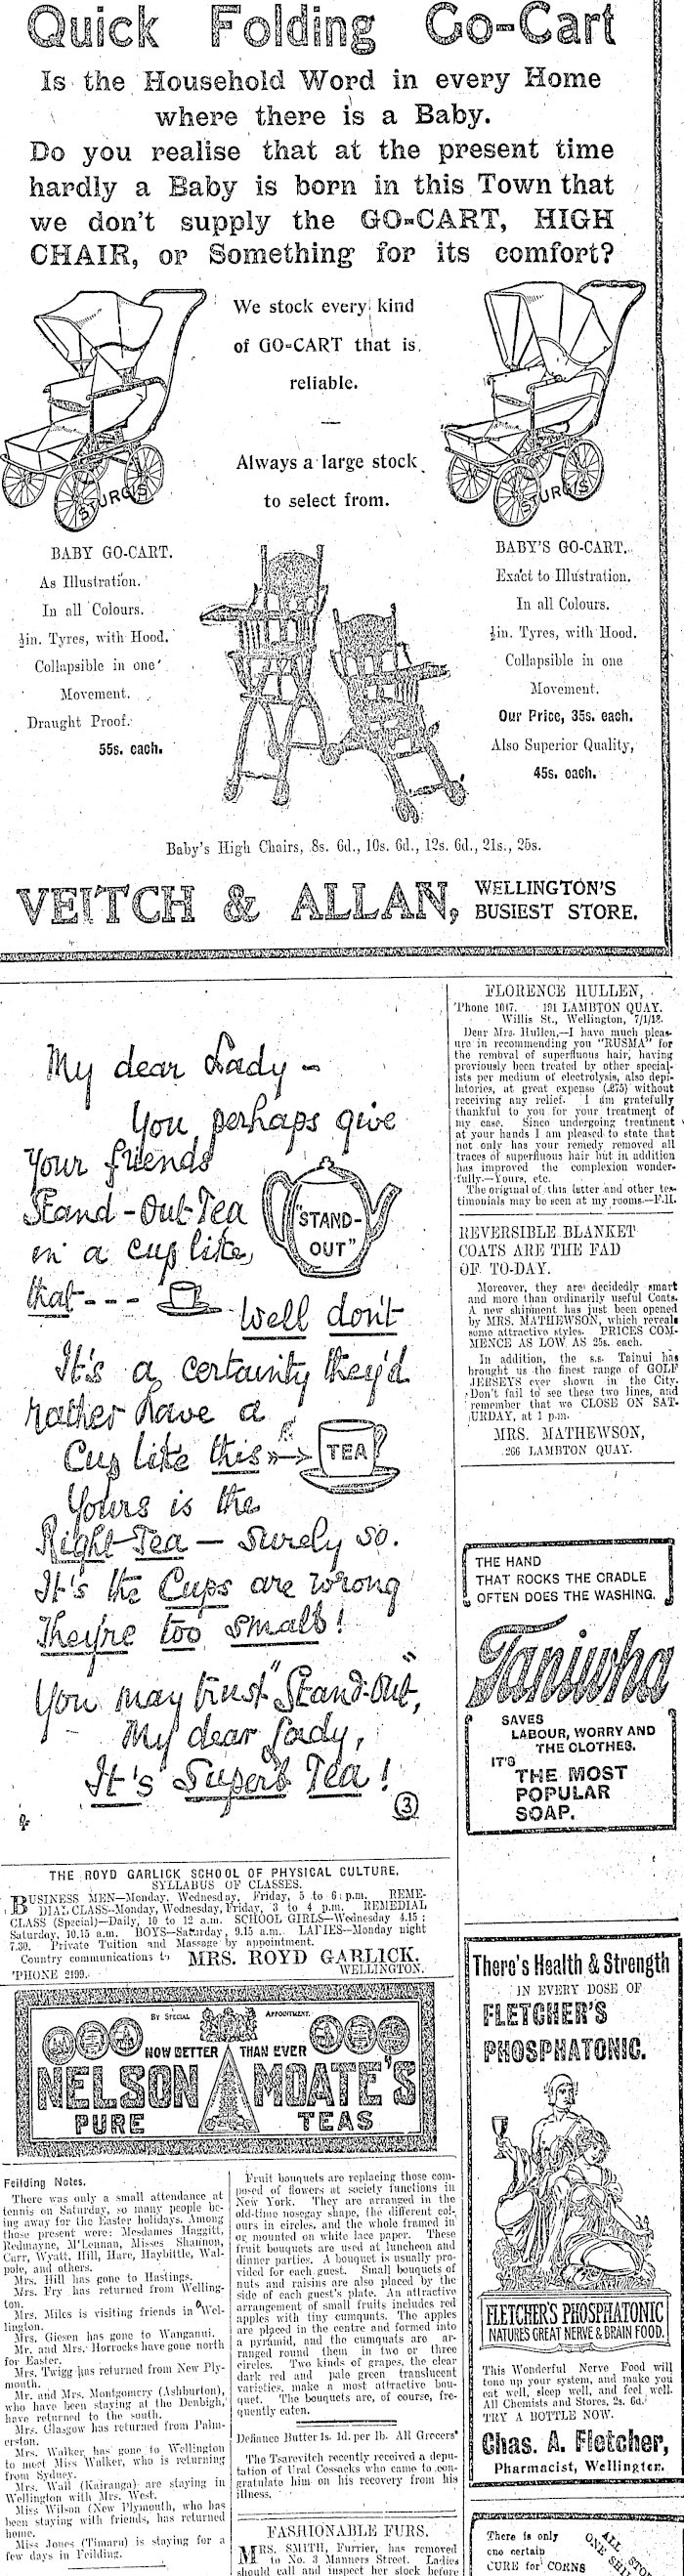 Quick Folding Go-Cart
Is the Household Word in every Home
where there is a Baby.
Do you realise that at the present time
hardly a Baby is born in this Town that
we don't supply the GO-CART, HIGH
CHAIR, or Something for its comfort?
We stock every kind
of GO-CART that is
reliable.
Always a large stock
to select from.
STURGIS
STURGIS
BABY GO-CART.
As Illustration.
In all Colours.
½in. Tyres, with Hood.
Collapsible in one
Movement.
Draught Proof.
55s. each.
BABY'S GO-CART.
Exact to Illustration.
In all Colours.
½in. Tyres, with Hood.
Collapsible in one
Movement.
Our Price, 35s. each.
Also Superior Quality,
45s. each.
Baby's High Chairs, 8s. 6d., 10s. 6d., 12s. 6d., 21s., 25s.
VEITCH & ALLAN, WELLINGTON'S
BUSIEST STORE.
My dear Lady -
You perhaps give
Your friends
Stand-Out-Tea
in a cup like
that---
"STAND-
OUT"
Well don't
It's a certainty they'd
rather have a
Cup like this
TEA
Yours is the
Right-Tea - Surely so.
It's the Cups are wrong
They're too small!
You may trust "Stand-Out",
My dear Lady,
It's Superb Tea!
3
THE ROYD GARLICK SCHOOL OF PHYSICAL CULTURE.
SYLLABUS OF CLASSES.
BUSINESS MEN—Monday, Wednesday, Friday, 5 to 6 p.m. REME-
DIAL CLASS—Monday, Wednesday, Friday, 3 to 4 p.m. REMEDIAL
CLASS (Special)—Daily, 10 to 12 a.m. SCHOOL GIRLS—Wednesday 4.15;
Saturday, 10.15 a.m. BOYS—Saturday, 9.15 a.m. LADIES—Monday night
7.30. Private Tuition and Massage by appointment.
Country communications to MRS. ROYD GARLICK.
'PHONE 2199. WELLINGTON.
BY SPECIAL APPOINTMENT.
NOW BETTER THAN EVER
NELSON MOATE'S
PURE TEAS
Feilding Notes.
There was only a small attendance at
tennis on Saturday, so many people be-
ing away for the Easter holidays. Among
those present were: Mesdames Haggitt,
Redmayne, M'Lennan, Misses Shannon,
Carr, Wyatt, Hill, Hare, Haybittle, Wal-
pole, and others.
Mrs. Hill has gone to Hastings.
Mrs. Fry has returned from Welling-
ton.
Mrs. Miles is visiting friends in Wel-
lington.
Mrs. Giesen has gone to Wanganui.
Mr. and Mrs. Horrocks have gone north
for Easter.
Mrs. Twigg has returned from New Ply-
mouth.
Mr. and Mrs. Montgomery (Ashburton),
who have been staying at the Denbigh,
have returned to the south.
Mrs. Glasgow has returned from Palm-
erston.
Mrs. Walker has gone to Wellington
to meet Miss Walker, who is returning
from Sydney.
Mrs. Wall (Kairanga) are staying in
Wellington with Mrs. West.
Miss Wilson (New Plymouth, who has
been staying with friends, has returned
home.
Miss Jones (Timaru) is staying for a
few days in Feilding.
Fruit bouquets are replacing those com-
posed of flowers at society functions in
New York. They are arranged in the
old-time nosegay shape, the different col-
ours in circles, and the whole framed in
or mounted on white lace paper. These
fruit bouquets are used at luncheon and
dinner parties. A bouquet is usually pro-
vided for each guest. Small bouquets of
nuts and raisins are also placed by the
side of each guest's plate. An attractive
arrangement of small fruits includes red
apples with tiny cumquats. The apples
are placed in the centre and formed into
a pyramid, and the cumquats are ar-
ranged round them in two or three
circles. Two kinds of grapes, the clear
dark red and pale green translucent
varieties, make a most attractive bou-
quet. The bouquets are, of course, fre-
quently eaten.
Defiance Butter 1s. 1d. per lb. All Grocers*
The Tsarevitch recently received a depu-
tation of Ural Cossacks who came to con-
gratulate him on his recovery from his
illness.
FASHIONABLE FURS.
MRS. SMITH, Furrier, has removed
to No. 3 Manners Street. Ladies
should call and inspect her stock before
FLORENCE HULLEN,
'Phone 1017. 191 LAMBTON QUAY.
Willis St., Wellington, 7/1/13.
Dear Mrs. Hullen,—I have much pleas-
ure in recommending you "RUSMA" for
the removal of superfluous hair, having
previously been treated by other special-
ists per medium of electrolysis, also depi-
latories, at great expense (£75) without
receiving any relief. I am gratefully
thankful to you for your treatment of
my case. Since undergoing treatment
at your hands I am pleased to state that
not only has your remedy removed all
traces of superfluous hair but in addition
has improved the complexion wonder-
fully.—Yours, etc.
The original of this letter and other tes-
timonials may be seen at my rooms.—F.H.
REVERSIBLE BLANKET
COATS ARE THE FAD
OF TO-DAY.
Moreover, they are decidedly smart
and more than ordinarily useful Coats.
A new shipment has just been opened
by MRS. MATHEWSON, which reveals
some attractive styles. PRICES COM-
MENCE AS LOW AS 25s. each.
In addition, the s.s. Tainui has
brought us the finest range of GOLF
JERSEYS ever shown in the City.
Don't fail to see these two lines, and
remember that we CLOSE ON SAT-
URDAY, at 1 p.m.
MRS. MATHEWSON,
266 LAMBTON QUAY.
THE HAND
THAT ROCKS THE CRADLE
OFTEN DOES THE WASHING.
Taniwha
SAVES
LABOUR, WORRY AND
THE CLOTHES.
IT'S
THE MOST
POPULAR
SOAP.
There's Health & Strength
IN EVERY DOSE OF
FLETCHER'S
PHOSPHATONIC.
FLETCHER'S PHOSPHATONIC
NATURES GREAT NERVE & BRAIN FOOD.
This Wonderful Nerve Food will
tone up your system, and make you
eat well, sleep well, and feel well.
All Chemists and Stores, 2s. 6d.
TRY A BOTTLE NOW.
Chas. A. Fletcher,
Pharmacist, Wellington.
There is only
one certain
CURE for CORNS